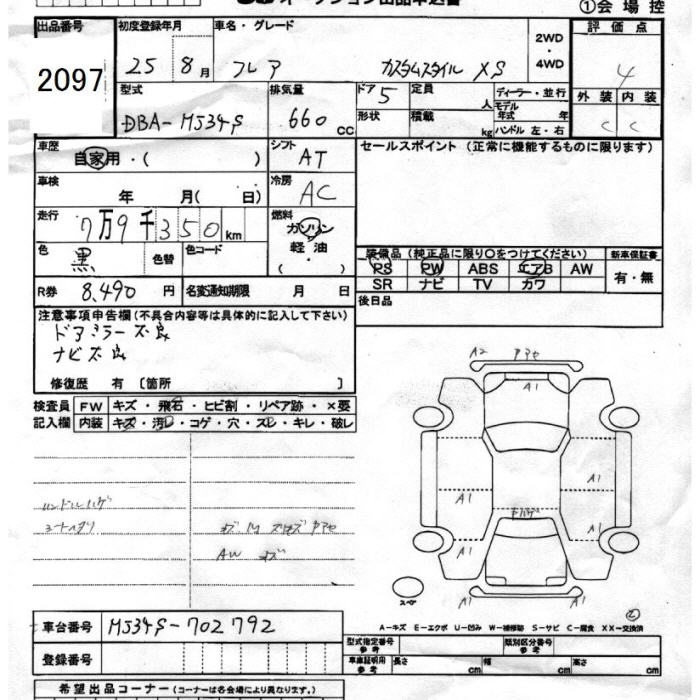 ①会場控
出品番号 初度登録年月 車名・グレード 2WD・4WD 評価点
2097 25 8月 フレア カスタムスタイル XS 4
型式 排気量 ドア 5 定員 人 ディーラー・並行 外装 内装
DBA-MJ34S 660 cc 形状 積載 kg モデル年式 年 ハンドル 左・右 C C
車歴 自家用・( ) シフト AT セールスポイント(正常に機能するものに限ります)
車検 年 月( 日) 冷房 AC
走行 7万9千350km 燃料 ガソリン 軽油 ・( )
色 黒 色替 色コード
装備品(純正品に限り○をつけてください) 新車保証書
PS PW ABS エアB AW 有・無
SR ナビ TV カワ
R券 8,490円 名変通知期限 月 日 後日品
注意事項申告欄(不具合内容等は具体的に記入して下さい)
ドアミラー不良
ナビ不良
修復歴 有 〔箇所 〕
検査員 FW キズ・飛石・ヒビ割・リペア跡・×要
記入欄 内装 キズ・汚レ・コゲ・穴・スレ・キレ・破レ
ハンドルハゲ
シートヘタリ
AW キズ
A2
A1
A1
A1
A1
A1
A1
A1
A1
スペア
A-キズ E-エクボ U-凹み W-補修跡 S-サビ C-腐食 XX-交換済
車台番号 MJ34S-702792 型式指定番号 参考 類別区分番号 参考
登録番号 車庫証明用 参考 長さ cm 幅 cm 高さ cm
希望出品コーナー(コーナーは各会場により異なります。)